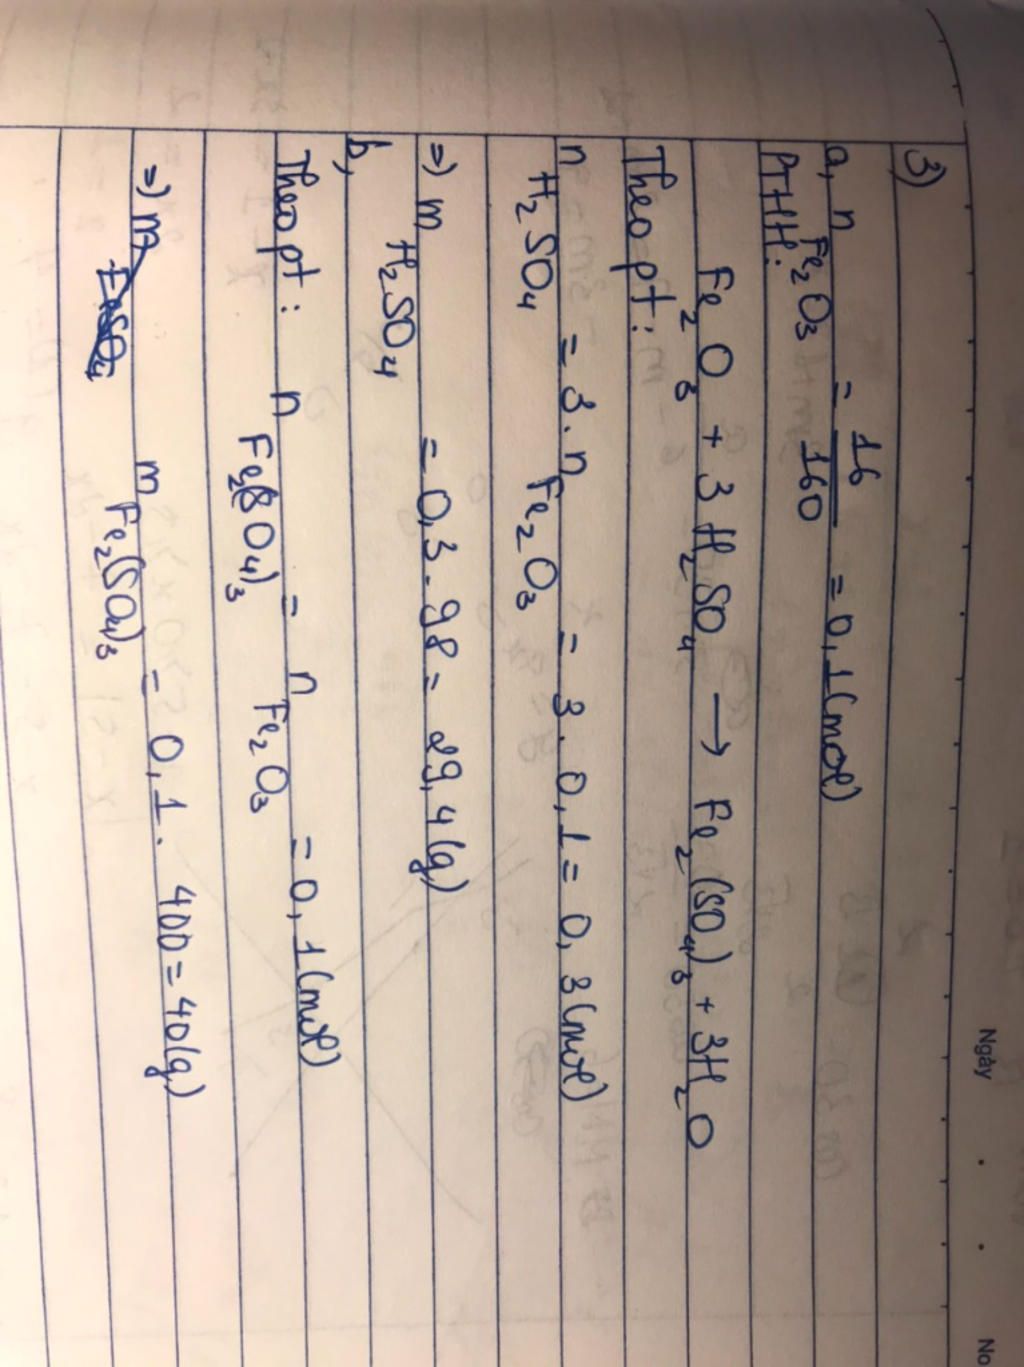 Ngày . . No
3)
a, n Fe₂O₃ = 16/160 = 0,1 (mol)
PTHH:
Fe₂O₃ + 3H₂SO₄ → Fe₂(SO₄)₃ + 3H₂O
Theo pt:
n H₂SO₄ = 3. n Fe₂O₃ = 3. 0,1 = 0,3 (mol)
=) m H₂SO₄ = 0,3. 98 = 29,4 (g)
b,
Theo pt: n Fe₂(SO₄)₃ = n Fe₂O₃ = 0,1 (mol)
=) m m Fe₂(SO₄)₃ = 0,1. 400 = 40 (g)